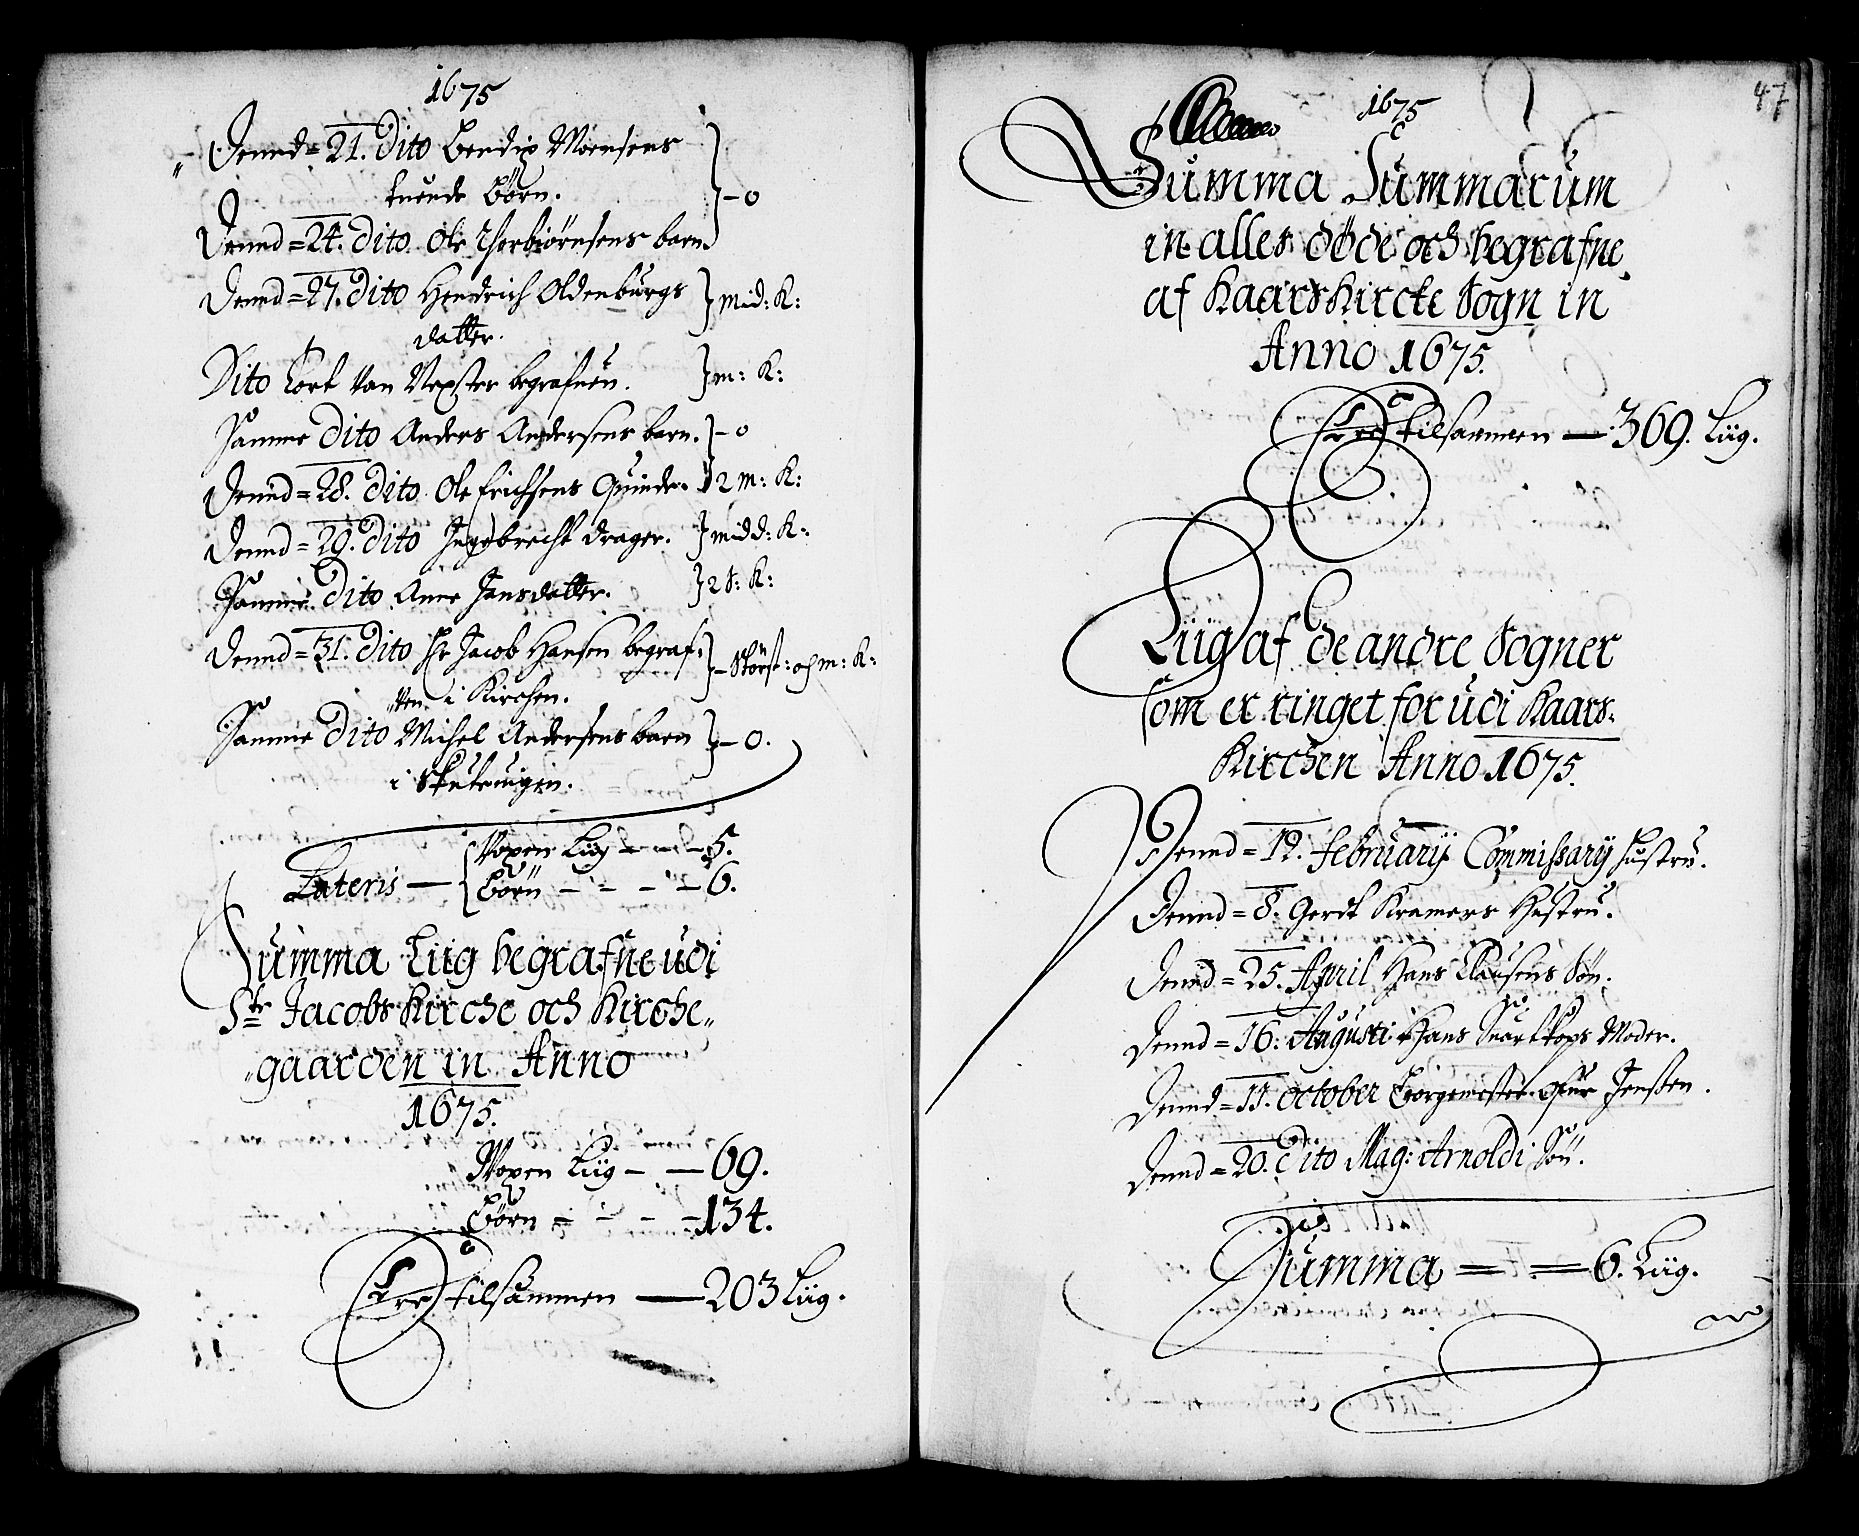 1675
Dennd = 21. Dito Bendix Monsens
tuende Börn. } – 0
Dennd = 24. Dito Ole Therbiörnsens barn.
Dennd = 27. Dito Hendrich Oldenburgs } mid: K:
datter.
Dito Cort van Vexster begrafuen. } m: K:
Samme Dito Anders Andersens barn. } – 0
Dennd = 28. Dito Ole Erichsens Quinde. } 2 m: K:
Dennd = 29. Dito Ingebrecht drager. } midd: K:
Samme Dito Anne Jansdatter. } 2 S: K:
Dennd = 31. Dito Hr Jacob Hansen begraf: } – Störst: och m: K:
„ven i Kirchen.
Samme Dito Michel Andersens barn } – 0.
i
Lateris — { Voxen Liig – – – 5.
Börn – – – – 6.
Summa Liig begrafne udi
Ste Jacobs Kirche och Kirche„
„gaarden in Anno
1675.
Voxen Liig – — 69.
Börn – – – – 134.
Er tilsammen —— 203 Liig.
47
1675
Summa Summarum
in alles döde och begrafne
af Kaarskircke Sogn in
Anno 1675.
Er tilsammen — 369. Liig.
Liig af de andre Sogner
som er ringet for udi Kaars:
Kirchen Anno 1675.
Dennd = 12. February Commissary Hustru.
Dennd = 8. Gerdt Kramers Hustru.
Dennd = 25. April Hans Clausens Sön.
Dennd = 16. Augusti Hans Suartkops Moder.
Dennd = 11. October Borgemester Jenssen.
Dennd = 20. Dito Mag: Arnoldi Sön.
Summa = = 6. Liig.